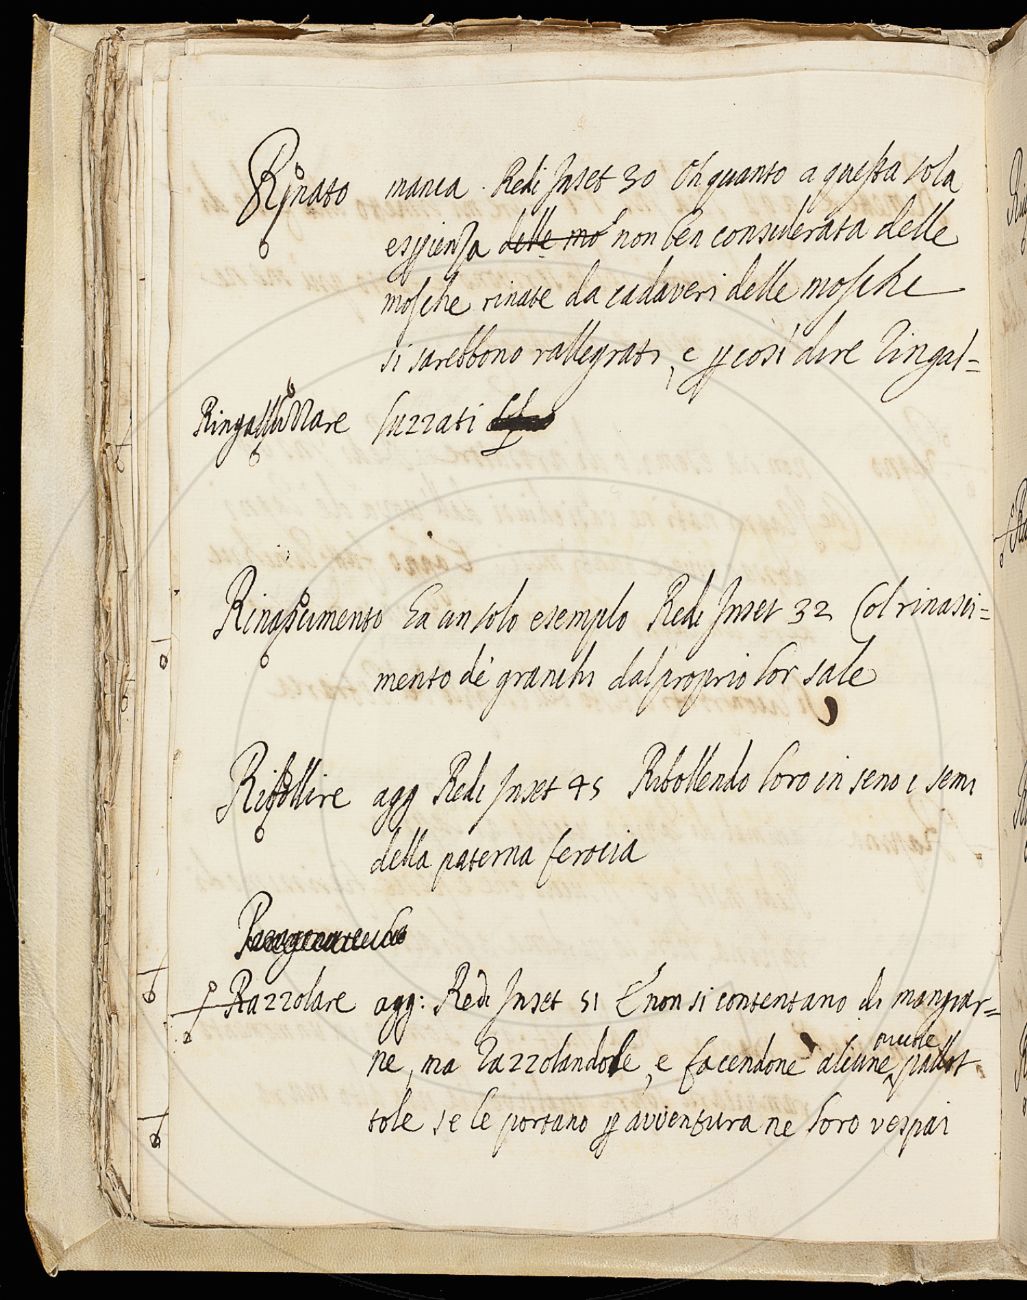 Rinato manca. Redi Inset 30 Oh quanto a questa sola
esperienza delle mo non ben considerata delle
mosche rinate da cadaveri delle mosche
si sarebbono rallegrati, e p così dire ringal=
Ringalluzzare luzzati
Rinascimento Ha un solo esemplo Redi Inset 32 Col rinasci=
mento de granchi dal proprio lor sale
Ribollire agg Redi Inset 45 Ribollendo loro in seno i semi
della paterna ferocia
Razzolare agg: Redi Inset 51 E non si contentano di mangiar=
ne, ma razzolandole, e facendone alcune piccole pallot
tole se le portano p avventura ne loro vespai